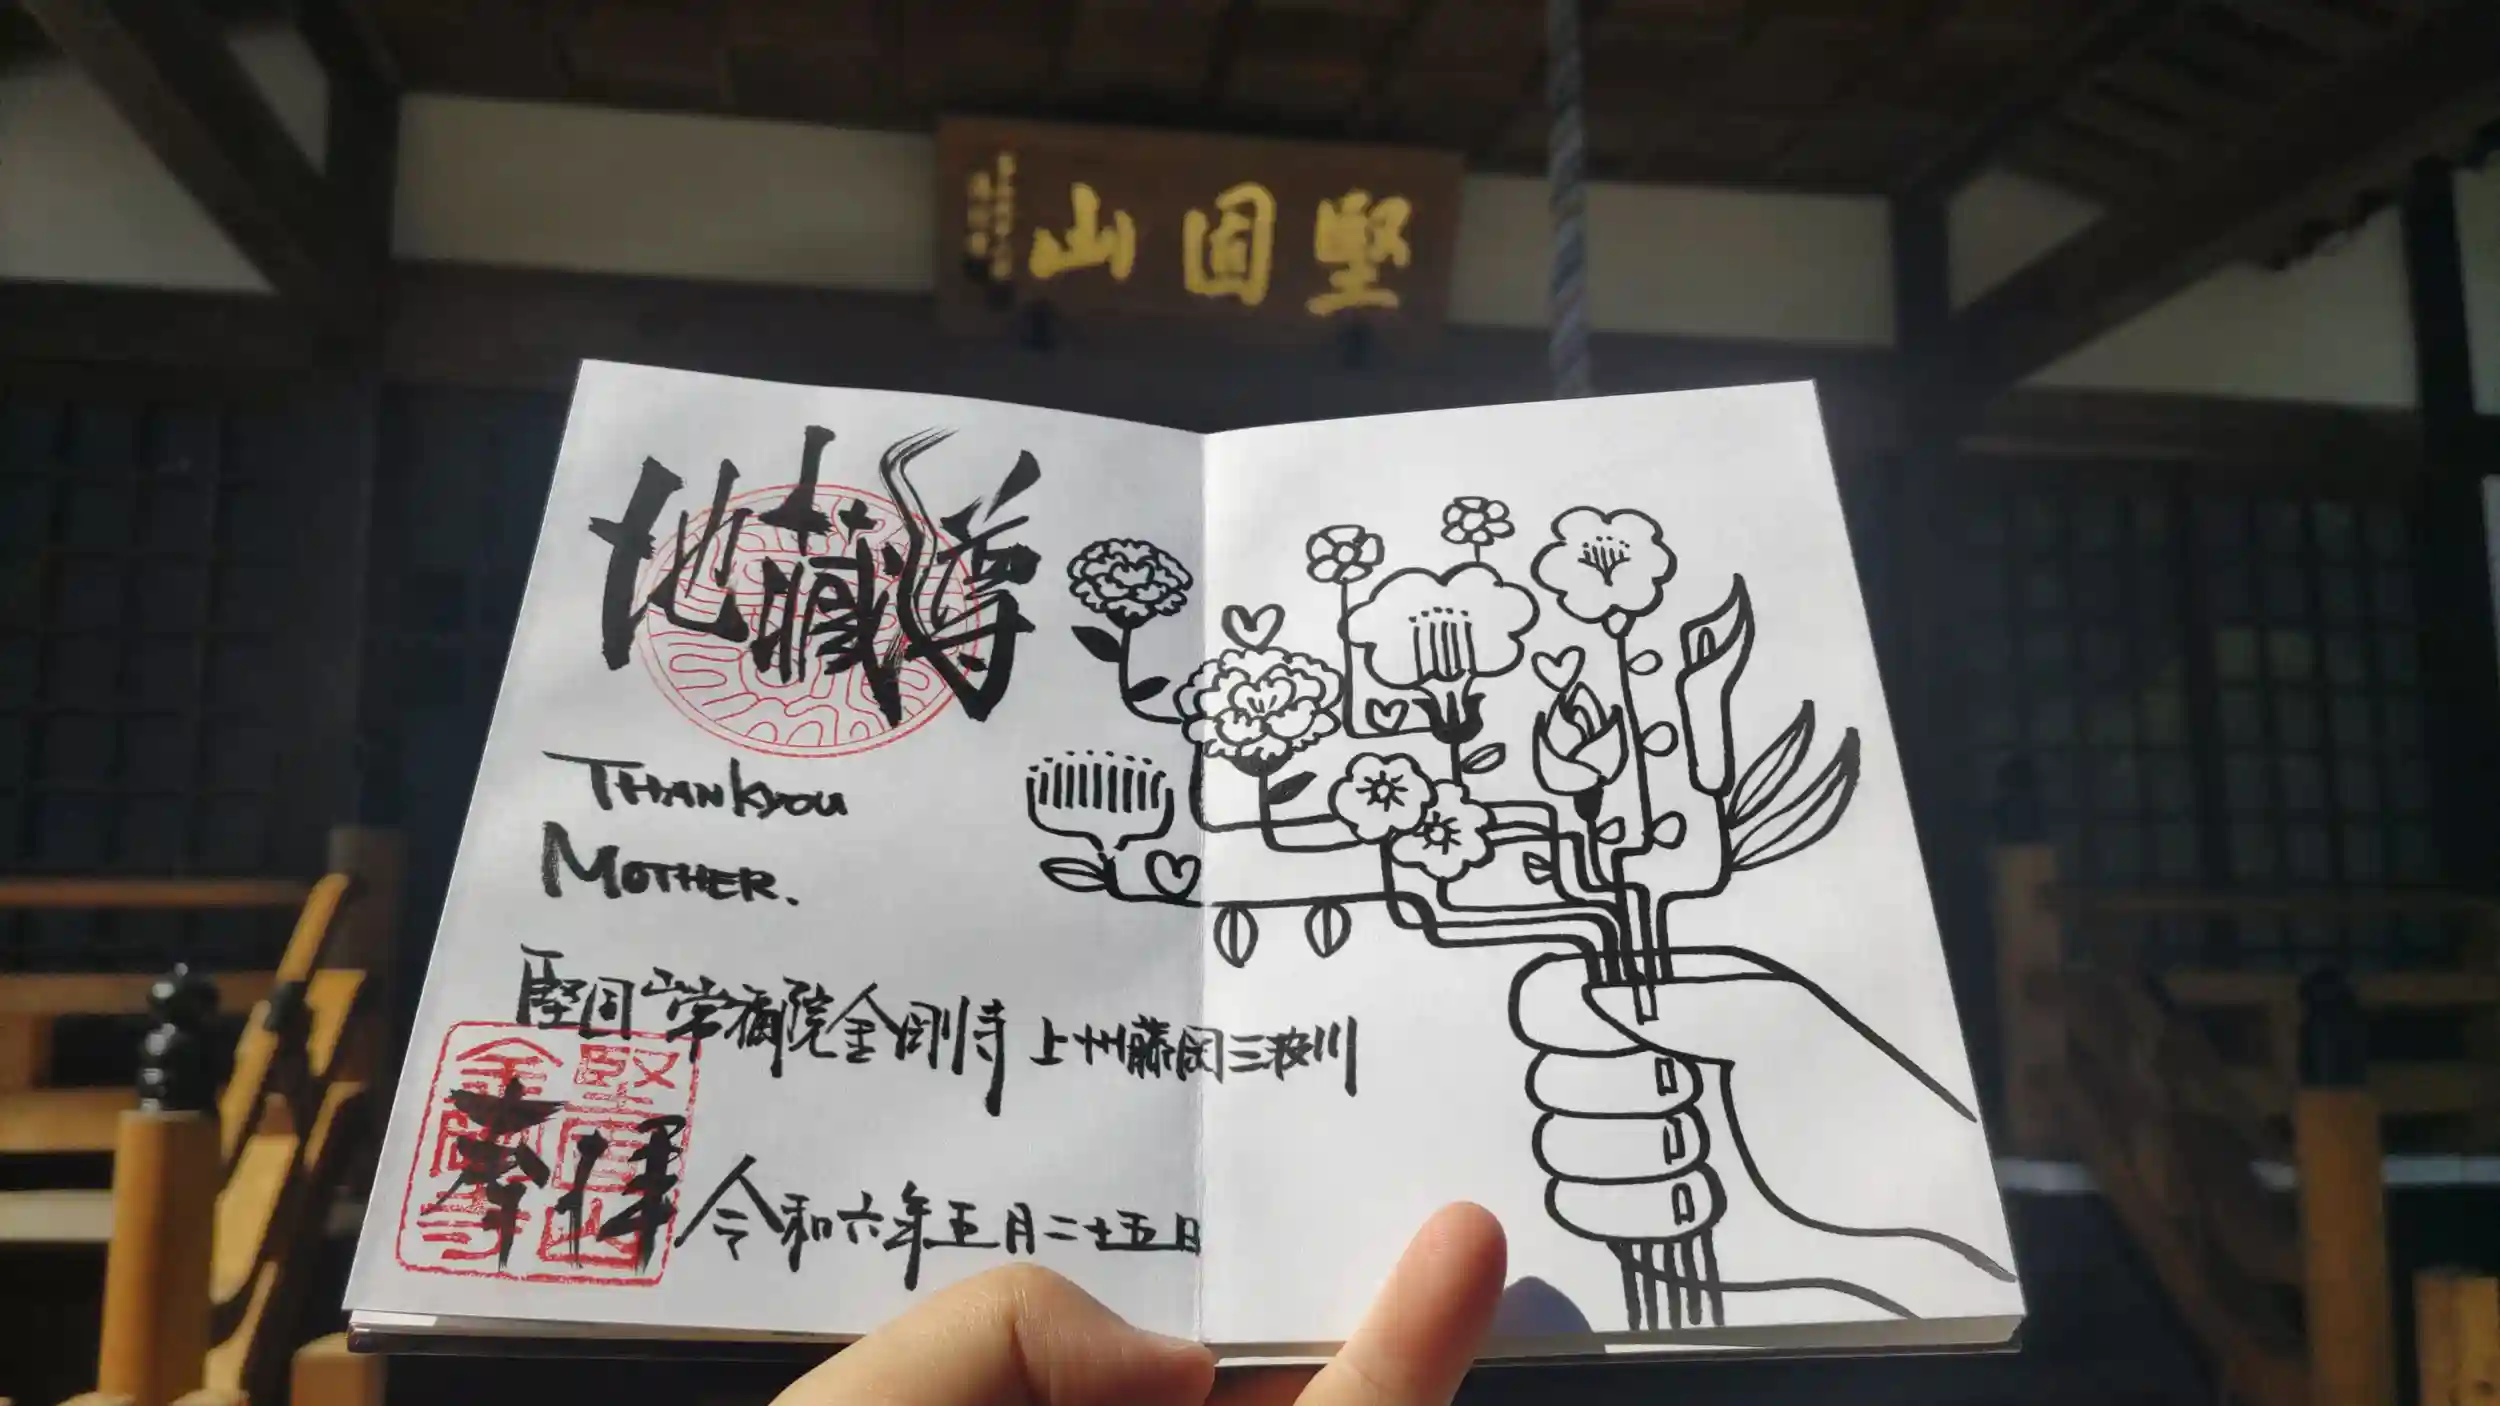 堅固山
地蔵尊
THANKyou
MOTHER.
堅固山常福院金剛寺 上州藤岡三波川
奉拝
令和六年五月二十五日
堅固山
金剛寺